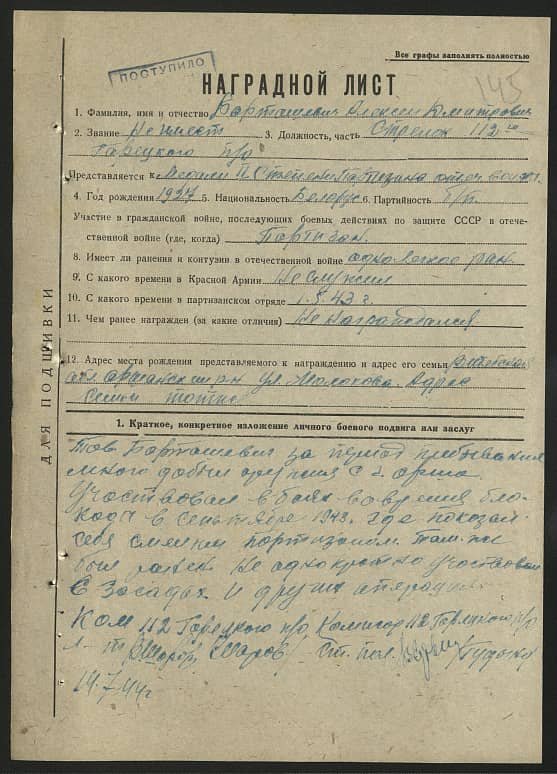 Все графы заполнять полностью
ПОСТУПИЛО
145
НАГРАДНОЙ ЛИСТ
1. Фамилия, имя и отчество Барташевич Алексей Дмитрович
2. Звание Не имеет 3. Должность, часть Стрелок 112
Горецкого п/о
Представляется к Медали II Степени Партизана отеч войны
4. Год рождения 1927 5. Национальность Белорус 6. Партийность б/п.
Участие в гражданской войне, последующих боевых действиях по защите СССР и отече-
ственной войне (где, когда) Партизан.
8. Имеет ли ранения и контузии в отечественной войне одно легкое ран.
9. С какого времени в Красной Армии Не служил
10. С какого времени в партизанском отряде 1.5.43 г.
11. Чем ранее награжден (за какие отличия) Не награждался
12. Адрес места рождения представляемого к награждению и адрес его семьи Витебская
обл. Оршанский р-н ул. Адрес
семьи тот же
ДЛЯ ПОДШИВКИ
1. Краткое, конкретное изложение личного боевого подвига или заслуг
Тов. Барташевич за период пребывания
много добыл оружия с г. Орша.
Участвовал в боях во время бло-
кады в сентябре 1943. где показал
себя смелым партизаном. там же
был ранен. Не однократно участвовал
в засадах. И других операциях
Ком 112 Горецкого п/о Комисар 112 Горецкого п/о
л-т /Шаров/ Ст. пол.
14.7.44г